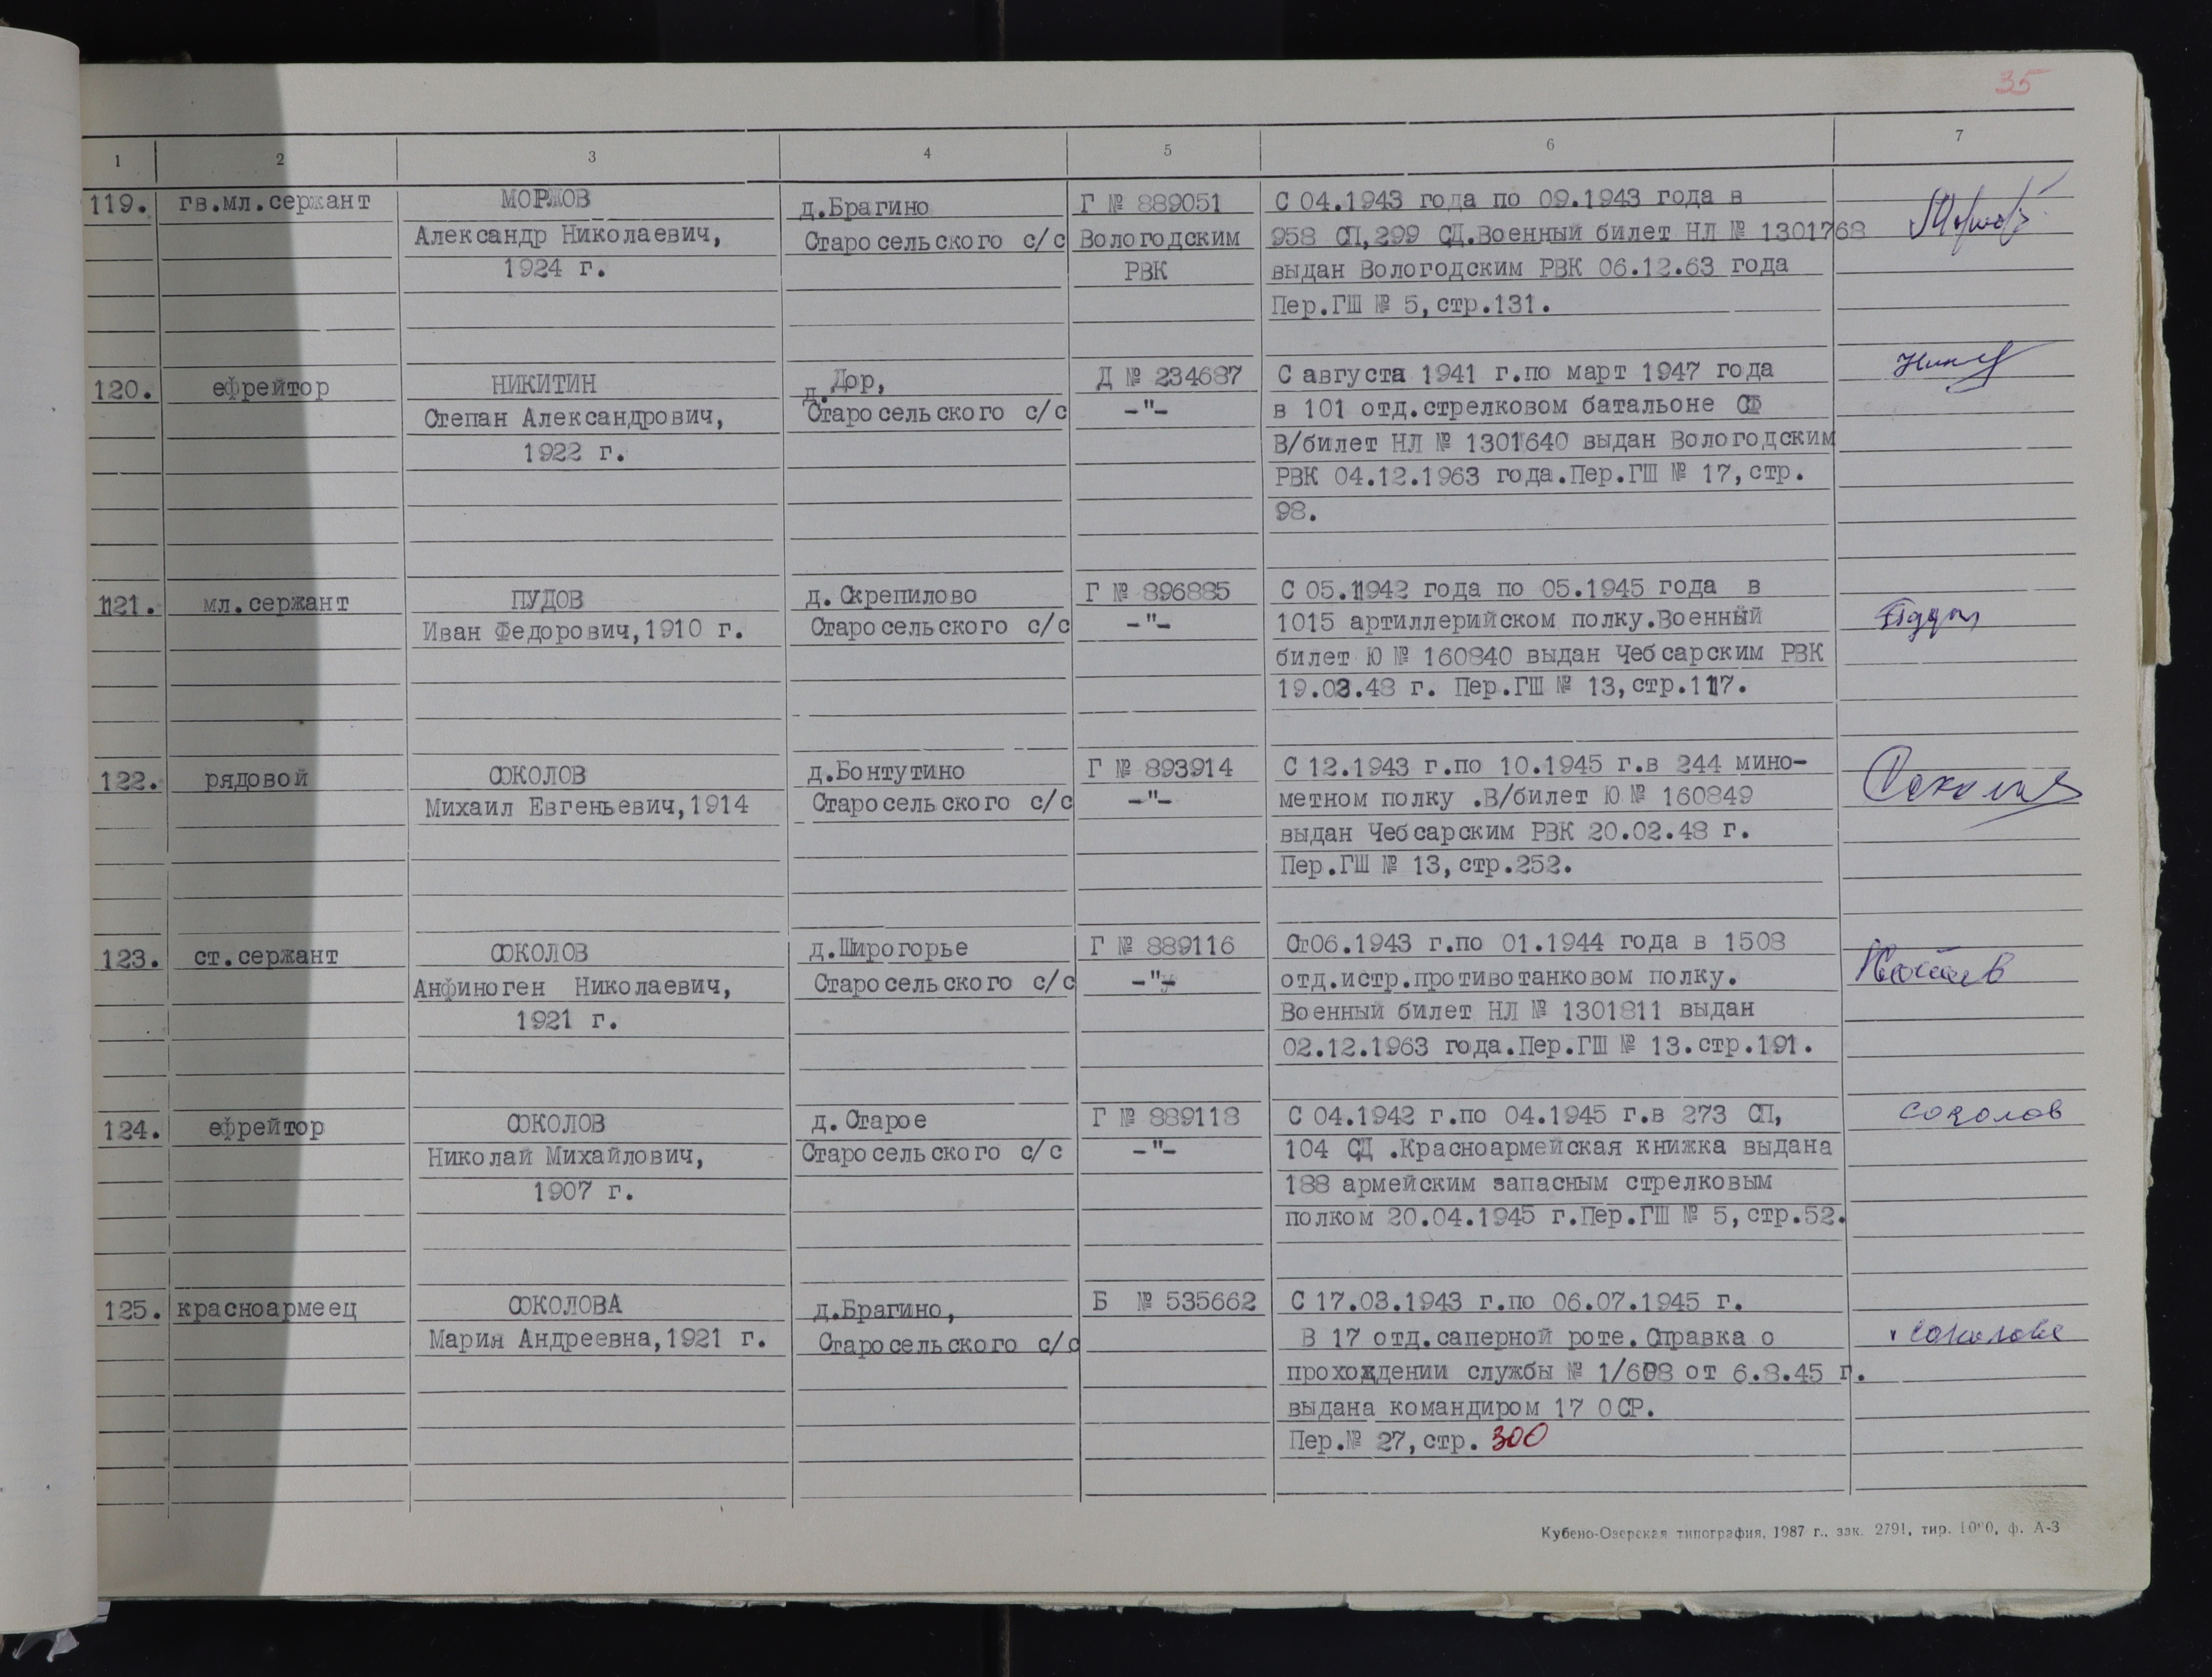 35
1 2 3 4 5 6 7
119. гв.мл.сержант
МОРЖОВ
Александр Николаевич,
1924 г.
д.Брагино
Старосельского с/с
Г № 889051
Вологодским
РВК
С 04.1943 года по 09.1943 года в
958 СП,299 СД.Военный билет НЛ № 1301768
выдан Вологодским РВК 06.12.63 года
Пер.ГШ № 5,стр.131.
120. ефрейтор
НИКИТИН
Степан Александрович,
1922 г.
д.Дор,
Старосельского с/с
Д № 234687
-"-
С августа 1941 г.по март 1947 года
в 101 отд.стрелковом батальоне СФ
В/билет НЛ № 1301640 выдан Вологодским
РВК 04.12.1963 года.Пер.ГШ № 17,стр.
98.
121. мл.сержант
ПУДОВ
Иван Федорович,1910 г.
д.Скрепилово
Старосельского с/с
Г № 896885
-"-
С 05.1942 года по 05.1945 года в
1015 артиллерийском полку.Военный
билет Ю № 160840 выдан Чебсарским РВК
19.02.48 г. Пер.ГШ № 13,стр.117.
122. рядовой
СОКОЛОВ
Михаил Евгеньевич,1914
д.Бонтутино
Старосельского с/с
Г № 893914
-"-
С 12.1943 г.по 10.1945 г.в 244 мино-
метном полку .В/билет Ю № 160849
выдан Чебсарским РВК 20.02.48 г.
Пер.ГШ № 13,стр.252.
123. ст.сержант
СОКОЛОВ
Анфиноген Николаевич,
1921 г.
д.Широгорье
Старосельского с/с
Г № 889116
-"-
С 06.1943 г.по 01.1944 года в 1508
отд.истр.противотанковом полку.
Военный билет НЛ № 1301811 выдан
02.12.1963 года.Пер.ГШ № 13.стр.191.
124. ефрейтор
СОКОЛОВ
Николай Михайлович,
1907 г.
д.Старое
Старосельского с/с
Г № 889118
-"-
С 04.1942 г.по 04.1945 г.в 273 СП,
104 СД .Красноармейская книжка выдана
188 армейским запасным стрелковым
полком 20.04.1945 г.Пер.ГШ № 5,стр.52.
Соколов
125. красноармеец
СОКОЛОВА
Мария Андреевна,1921 г.
д.Брагино,
Старосельского с/с
Б № 535662
С 17.03.1943 г.по 06.07.1945 г.
В 17 отд.саперной роте.Справка о
прохождении службы № 1/608 от 6.8.45 г.
выдана командиром 17 ОСР.
Пер.№ 27,стр. 300
Соколова
Кубено-Озерская типография, 1987 г., зак. 2791, тир. 1000, ф. А-3